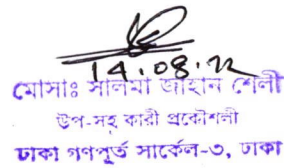 14.08.22
মোসাঃ সালমা জাহান শেলী
উপ-সহ কারী প্রকৌশলী
ঢাকা গণপূর্ত সার্কেল-৩, ঢাকা